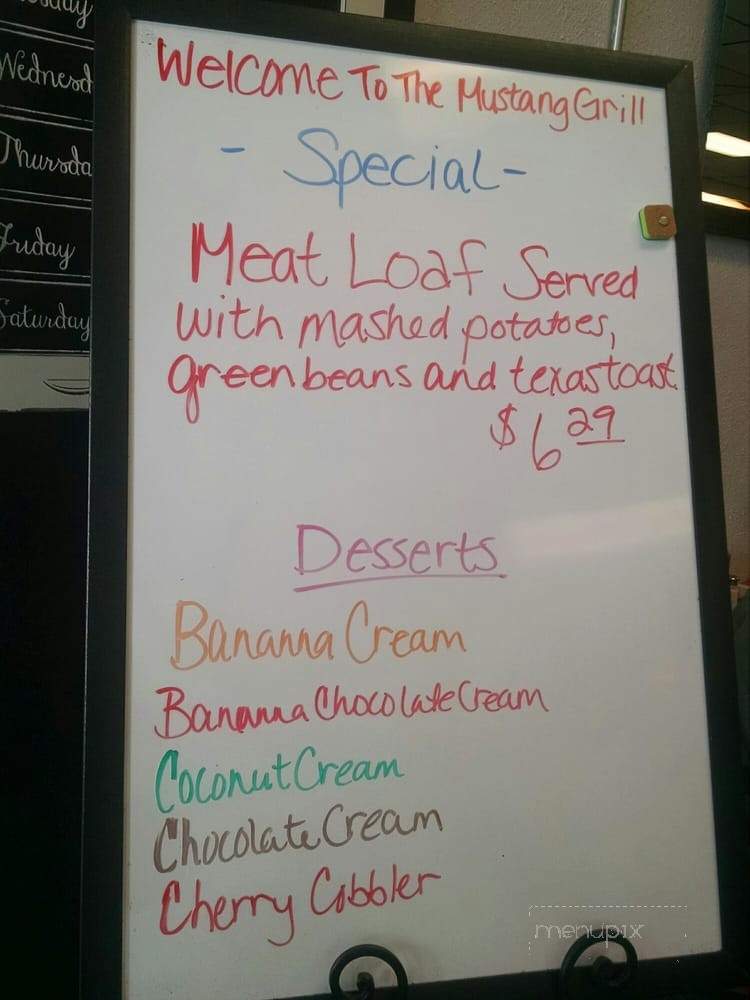 Wednesd
Thursda
Friday
Saturday
Welcome To The Mustang Grill
- Special -
Meat Loaf Served
with mashed potatoes,
green beans and texas toast
$6 29
Desserts
Bananna Cream
Bananna Chocolate Cream
Coconut Cream
Chocolate Cream
Cherry Cobbler
menupix